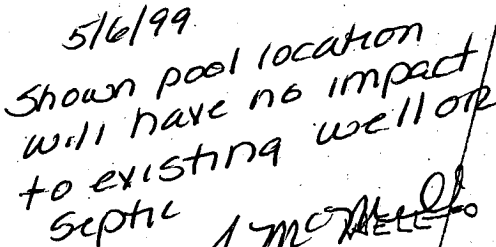 5/6/99
Shown pool location
will have no impact
to existing well or
septic